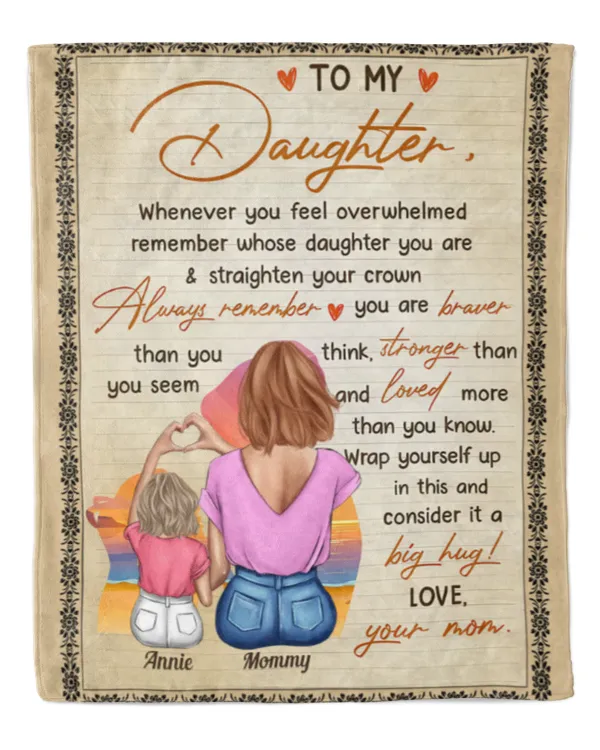 TO MY
Daughter,
Whenever you feel overwhelmed
remember whose daughter you are
& straighten your crown
Always remember you are braver
than you think, stronger than
you seem and loved more
than you know.
Wrap yourself up
in this and
consider it a
big hug!
LOVE,
your mom.
Annie Mommy